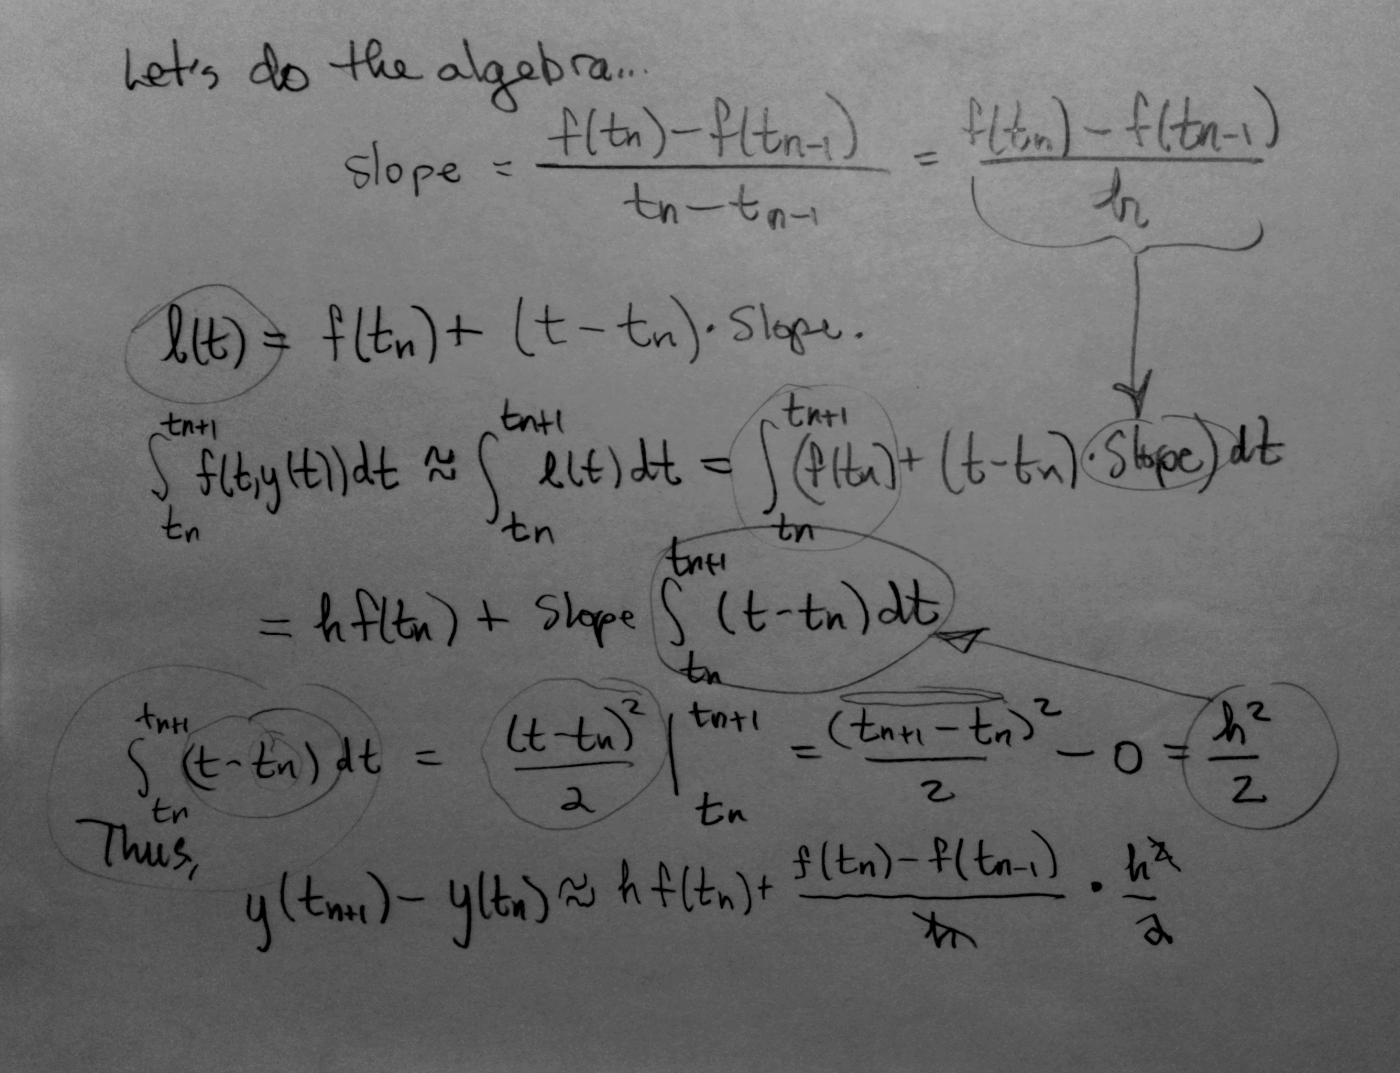 Let's do the algebra...
slope = \frac{f(t_n) - f(t_{n-1})}{t_n - t_{n-1}} = \frac{f(t_n) - f(t_{n-1})}{h}
l(t) = f(t_n) + (t - t_n) · slope.
\int_{t_n}^{t_{n+1}} f(t, y(t)) dt ≈ \int_{t_n}^{t_{n+1}} l(t) dt = \int_{t_n}^{t_{n+1}} (f(t_n) + (t - t_n) · slope) dt
= h f(t_n) + slope \int_{t_n}^{t_{n+1}} (t - t_n) dt
\int_{t_n}^{t_{n+1}} (t - t_n) dt = \frac{(t - t_n)^2}{2} |_{t_n}^{t_{n+1}} = \frac{(t_{n+1} - t_n)^2}{2} - 0 = \frac{h^2}{2}
Thus,
y(t_{n+1}) - y(t_n) ≈ h f(t_n) + \frac{f(t_n) - f(t_{n-1})}{h} · \frac{h^2}{2}